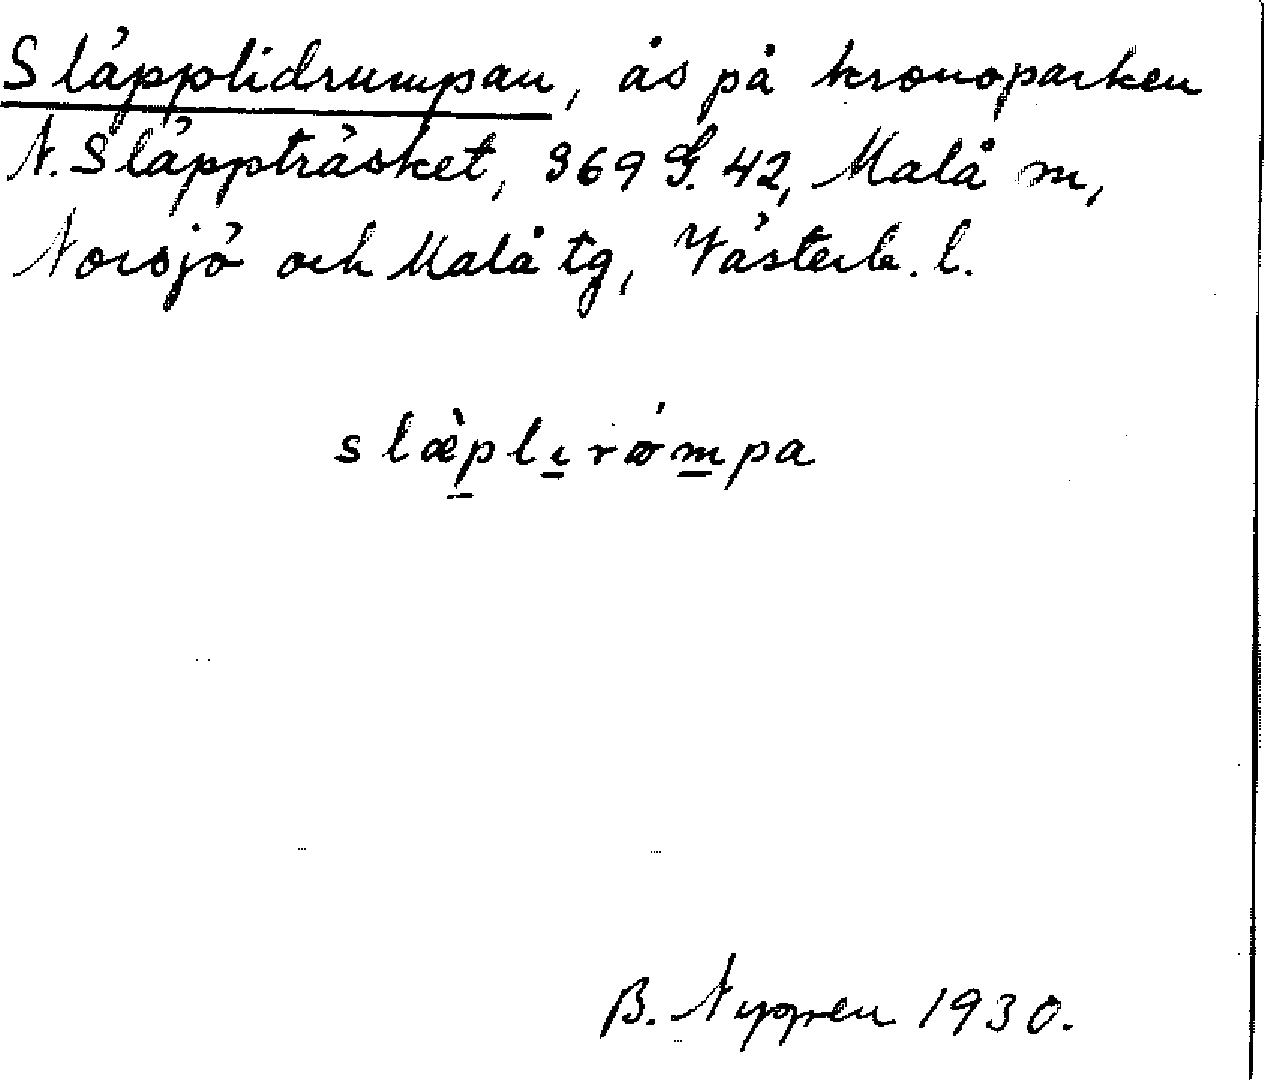 Släpplidrumpan, ås på kronoparken
N. Släppträsket, 369 G. 42, Malå m,
Norsjö och Malå tg, Västerb. l.
slæ̀plırømpa
B. Nygren 1930.